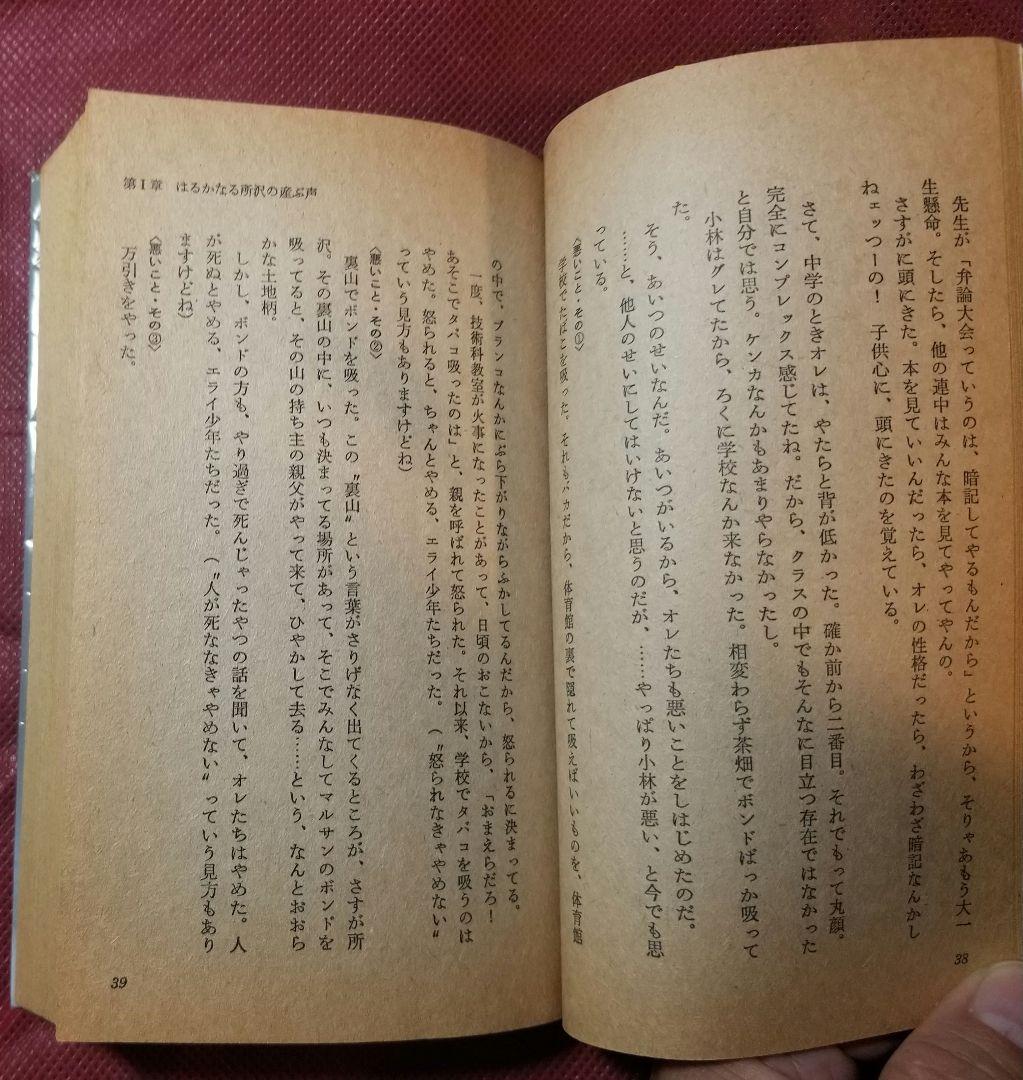 先生が「弁論大会っていうのは、暗記してやるもんだから」というから、そりゃあもう大一
生懸命。そしたら、他の連中はみんな本を見てやってやんの。
さすがに頭にきた。本を見ていいんだったら、オレの性格だったら、わざわざ暗記なんかし
ねェっつーの！　子供心に、頭にきたのを覚えている。
さて、中学のときオレは、やたらと背が低かった。確か前から二番目。それでもって丸顔。
完全にコンプレックス感じてたね。だから、クラスの中でもそんなに目立つ存在ではなかった
と自分では思う。ケンカなんかもあまりやらなかったし。
小林はグレてたから、ろくに学校なんか来なかった。相変わらず茶畑でボンドばっか吸って
た。
そう、あいつのせいなんだ。あいつがいるから、オレたちも悪いことをしはじめたのだ。
……と、他人のせいにしてはいけないと思うのだが、……やっぱり小林が悪い、と今でも思
っている。
〈悪いこと・その①〉
学校でたばこを吸った。それもバカだから、体育館の裏で隠れて吸えばいいものを、体育館
38
第Ⅰ章　はるかなる所沢の産ぶ声
の中で、ブランコなんかにぶら下がりながらふかしてるんだから、怒られるに決まってる。
一度、技術科教室が火事になったことがあって、日頃のおこないから、「おまえらだろ！
あそこでタバコ吸ったのは」と、親を呼ばれて怒られた。それ以来、学校でタバコを吸うのは
やめた。怒られると、ちゃんとやめる、エライ少年たちだった。（〝怒られなきゃやめない〟
っていう見方もありますけどね）
〈悪いこと・その②〉
裏山でボンドを吸った。この〝裏山〟という言葉がさりげなく出てくるところが、さすが所
沢。その裏山の中に、いつも決まってる場所があって、そこでみんなしてマルサンのボンドを
吸ってると、その山の持ち主の親父がやって来て、ひやかして去る……という、なんとおおら
かな土地柄。
しかし、ボンドの方も、やり過ぎで死んじゃったやつの話を聞いて、オレたちはやめた。人
が死ぬとやめる、エライ少年たちだった。（〝人が死ななきゃやめない〟っていう見方もあり
ますけどね）
〈悪いこと・その③〉
万引きをやった。
39